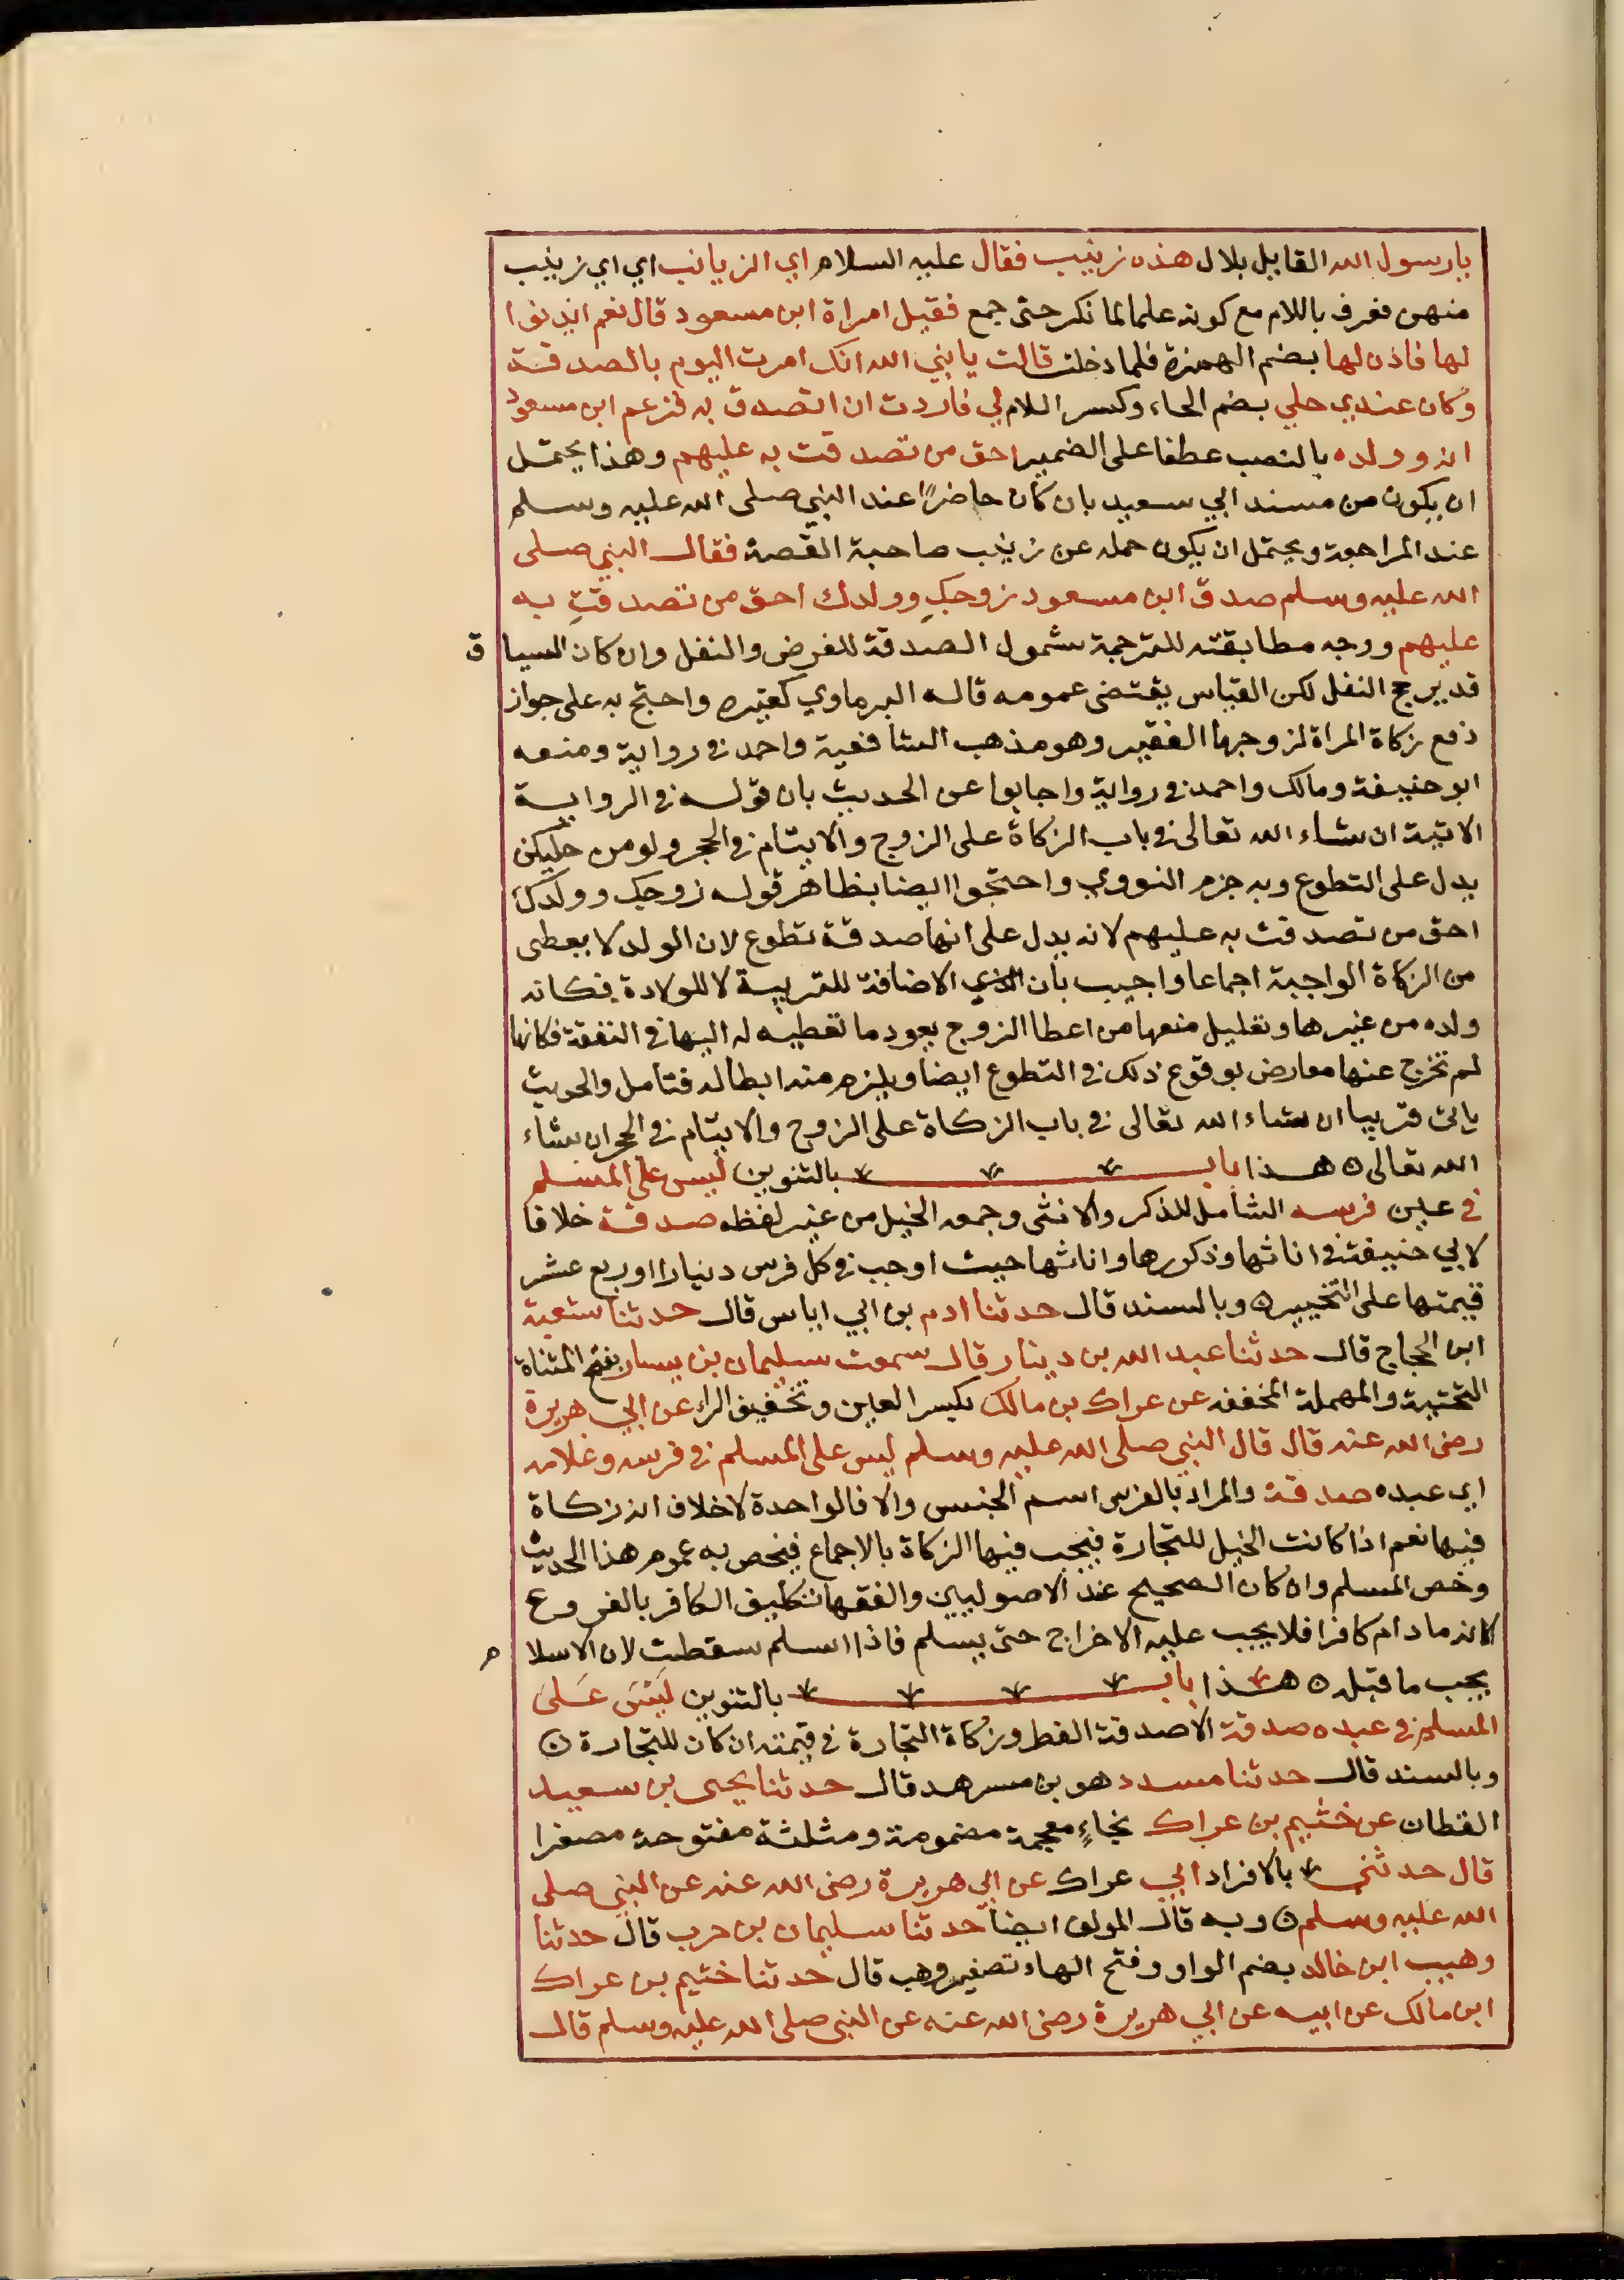 يارسول الله القايل بلال هذه زينب فقال عليه السلام اي الزيانب اي اي زينب
منهن فعرف باللام مع كونه علما لما نكر حتى جمع فقيل امراة ابن مسعود قال نعم ايذنوا
لها فاذن لها بضم الهمزة فلما دخلت قالت يا نبي الله انك امرت اليوم بالصدقة
وكان عندي حلي بضم الحاء وكسر اللام لي فاردت ان اتصدق به فزعم ابن مسعود
انه وولده بالنصب عطفا على الضمير احق من تصدقت به عليهم وهذا يحتمل
ان يكون من مسند ابي سعيد بان كان حاضرًا عند النبي صلى الله عليه وسلم
عند المراجعة ويحتمل ان يكون حمله عن زينب صاحبة القصة فقال النبي صلى
الله عليه وسلم صدق ابن مسعود زوجكِ وولدك احق من تصدقتِ به
عليهم ووجه مطابقته للترجمة شمول الصدقة للفرض والنفل وان كان السياق
قد يرجح النفل لكن القياس يقتضي عمومه قاله البرماوي كغيره واحتج به على جواز
دفع زكاة المراة لزوجها الفقير وهو مذهب الشافعية واحمد في رواية ومنعه
ابو حنيفة ومالك واحمد في رواية واجابوا عن الحديث بان قوله في الرواية
الاتية ان شاء الله تعالى في باب الزكاة على الزوج والايتام في الحجر ولو من حليكن
يدل على التطوع وبه جزم النووي واحتجوا ايضا بظاهر قوله زوجك وولدك
احق من تصدقت به عليهم لانه يدل على انها صدقة تطوع لان الولد لا يعطى
من الزكاة الواجبة اجماعا واجيب بان الاضافة للتربية لا للولادة فكانه
ولده من غيرها وتعليل منعها من اعطا الزوج يعود ما تعطيه له اليها في النفقة فكانها
لم تخرج عنها معارض بوقوع ذلك في التطوع ايضا ويلزم منه ابطاله فتامل والحديث
ياتى قريبا ان شاء الله تعالى في باب الزكاة على الزوج والايتام في الحجر ان شاء
الله تعالى ه هذا باب بالتنوين ليس على المسلم
في عين فرسه الشامل للذكر والانثى وجمعه الخيل من غير لفظه صدقة خلافا
لابي حنيفة في اناثها وذكورها واناثها حيث اوجب في كل فرس دينارا او ربع عشر
قيمتها على التخيير ه وبالسند قال حدثنا ادم بن ابي اياس قال حدثنا شعبة
ابن الحجاج قال حدثنا عبد الله بن دينار قال سمعت سليمان بن يسار بفتح المثناة
التحتية والمهملة المخففه عن عراك بن مالك بكسر العين وتخفيف الراء عن ابي هريرة
رضى الله عنه قال قال النبي صلى الله عليه وسلم ليس على المسلم في فرسه وغلامه
اي عبده صدقة والمراد بالفرس اسم الجنس والا فالواحدة لا خلاف انه زكاة
فيها نعم اذا كانت الخيل للتجارة فيجب فيها الزكاة بالاجماع فيخص به عموم هذا الحديث
وخص المسلم وان كان الصحيح عند الاصوليين والفقها تكليف الكافر بالفروع
لانه مادام كافرا فلا يجب عليه الاخراج حتى يسلم فاذا اسلم سقطت لان الاسلام
يجب ما قبله ه هذا باب بالتنوين ليس على
المسلم في عبده صدقة الا صدقة الفطر وزكاة التجارة في قيمته ان كان للتجارة ه
وبالسند قال حدثنا مسدد هو بن مسرهد قال حدثنا يحيى بن سعيد
القطان عن خثيم بن عراك بخاءٍ معجمة مضمومة ومثلثة مفتوحة مصغرا
قال حدثني بالافراد ابي عراك عن ابي هريرة رضى الله عنه عن النبي صلى
الله عليه وسلم ه وبه قال المولف ايضا حدثنا سليمان بن حرب قال حدثنا
وهيب ابن خالد بضم الواو وفتح الهاء تصغير وهب قال حدثنا خثيم بن عراك
ابن مالك عن ابيه عن ابي هريرة رضى الله عنه عن النبي صلى الله عليه وسلم قال